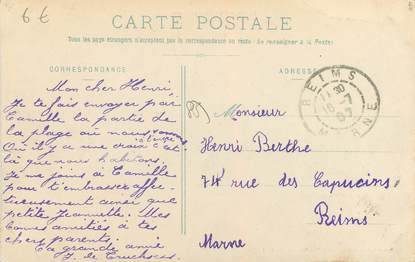 6 €
CARTE POSTALE
Tous les pays étrangers n'acceptent pas la correspondance au recto (Se renseigner à la Poste)
CORRESPONDANCE
ADRESSE
REIMS
MARNE
Mon cher Henri,
Je te fais envoyer par
Camille la partie de
la plage où nous sommes
Où il y a une croix c'est
là que nous habitons.
Je me joins à Camille
pour t'embrasser affec-
tueusement ainsi que
petite Jeannette. Mes
bonnes amitiés à tes
chers parents.
Ta grande amie
Monsieur
Henri Berthe
74 rue des Capucins
Reims
Marne